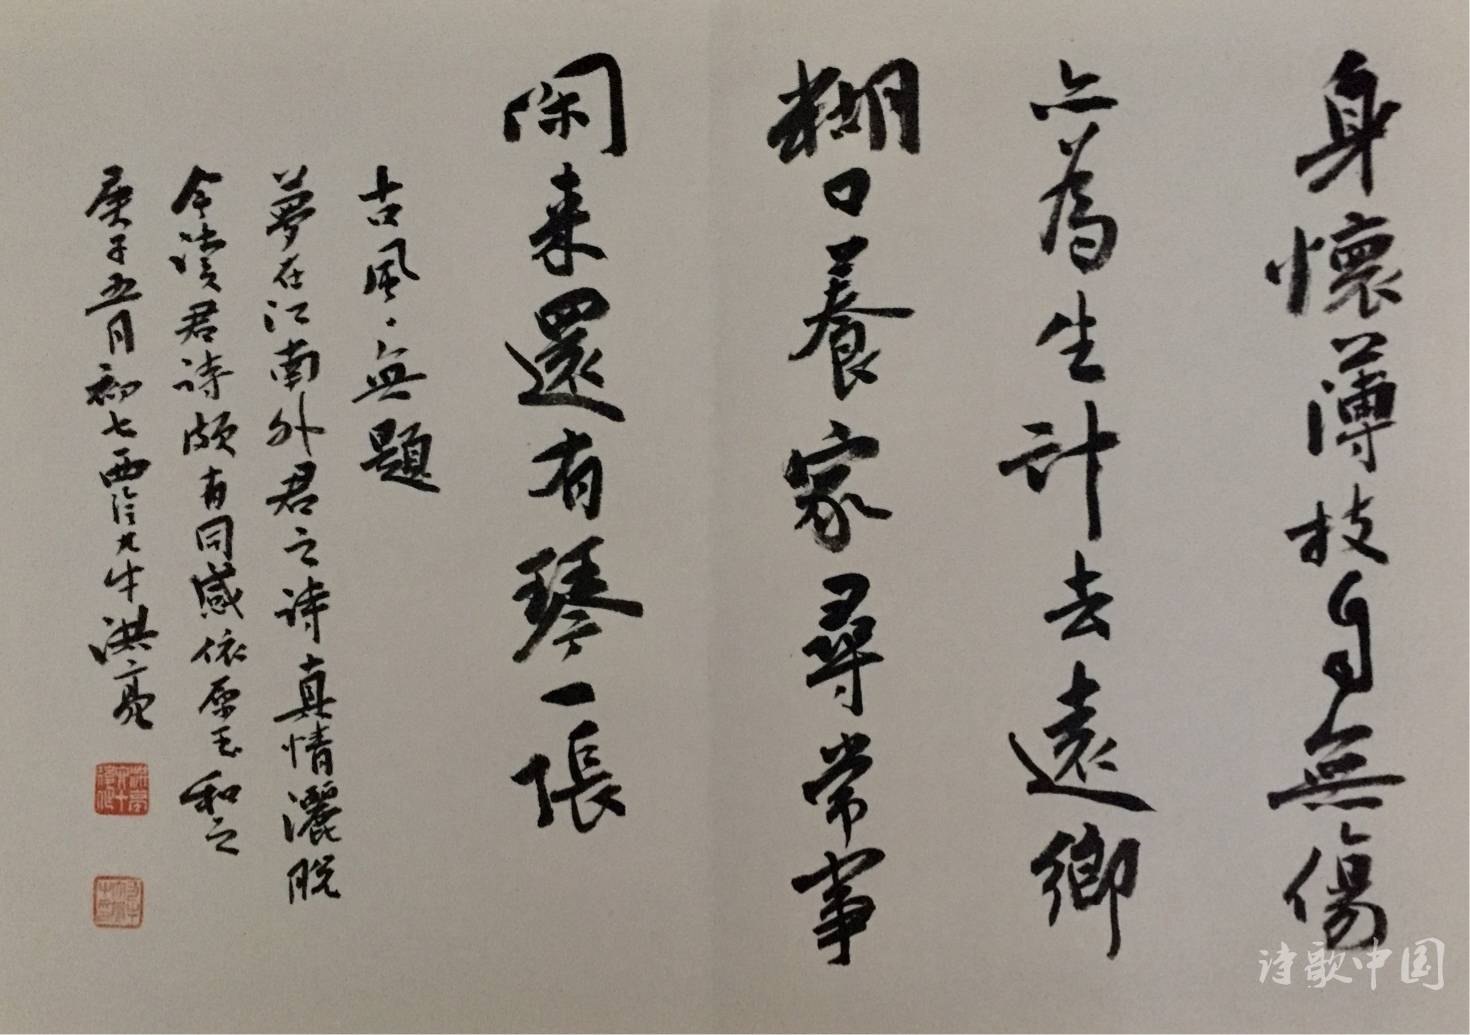 身懷薄技自無傷
亦為生計去遠鄉
糊口養家尋常事
閑来還有琴一張
古风、無題
夢在江南外君之诗真情灑脱
今读君诗颇有同感依原玉和之
庚子五月初七西泠九牛洪亮
诗歌中国